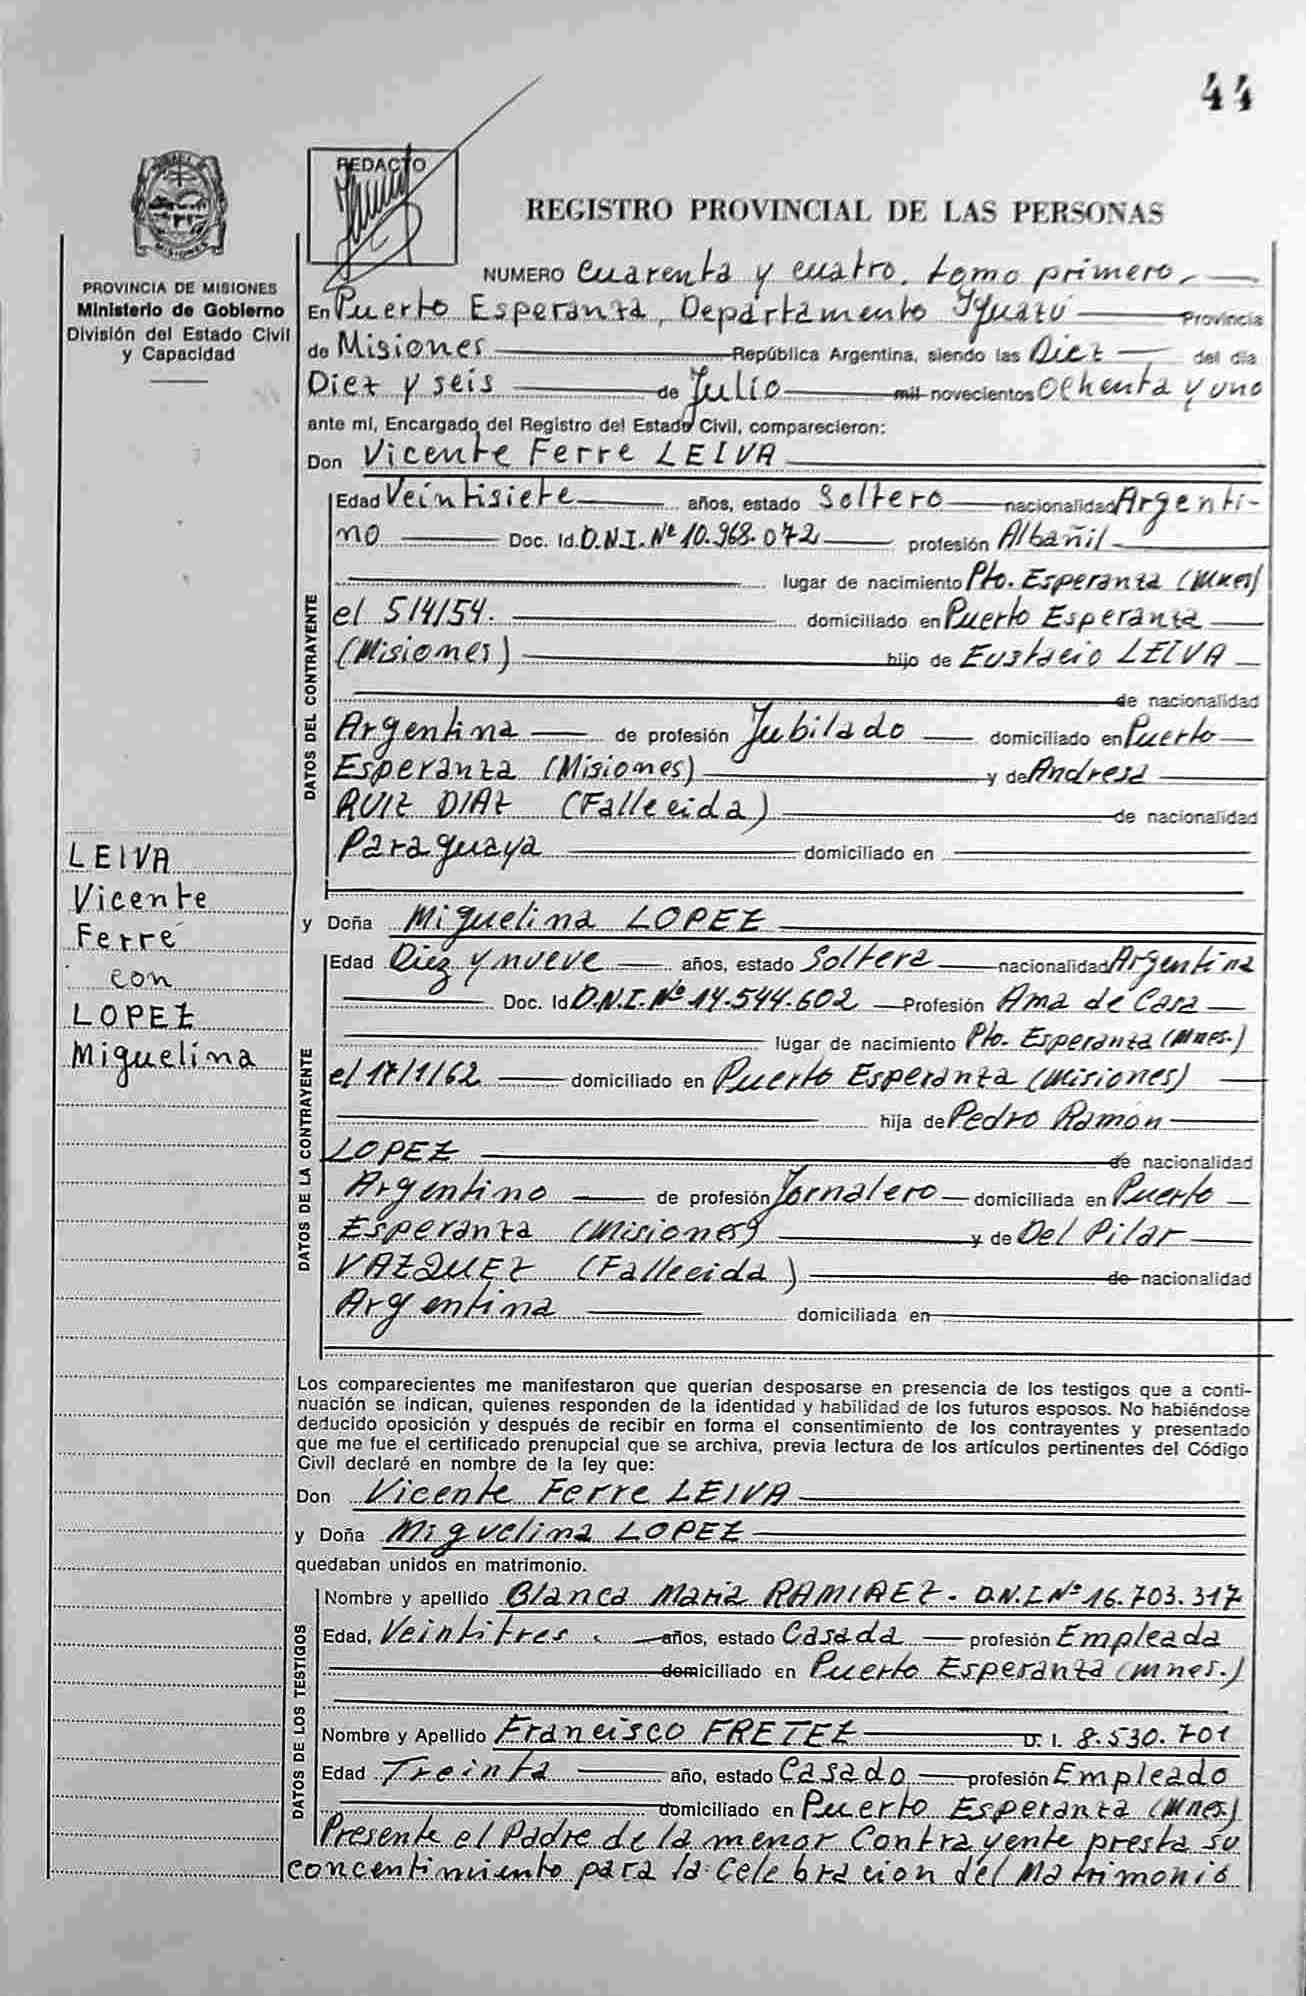 44
REDACTO
REGISTRO PROVINCIAL DE LAS PERSONAS
MISIONES
PROVINCIA DE MISIONES
Ministerio de Gobierno
División del Estado Civil
y Capacidad
NUMERO Cuarenta y cuatro. tomo primero.
En Puerto Esperanza, Departamento Iguazú Provincia
de Misiones República Argentina, siendo las Diez del día
Diez y seis de Julio mil novecientos Ochenta y uno
ante mí, Encargado del Registro del Estado Civil, comparecieron:
Don Vicente Ferre LEIVA
DATOS DEL CONTRAYENTE
Edad Veintisiete años, estado Soltero nacionalidad Argenti-
no Doc. Id. D.N.I. Nº 10.968.072 profesión Albañil
lugar de nacimiento Pto. Esperanza (Mnes)
el 5/4/54. domiciliado en Puerto Esperanza
(Misiones) hijo de Eustacio LEIVA
de nacionalidad
Argentina de profesión Jubilado domiciliado en Puerto
Esperanza (Misiones) y de Andresa
RUIZ DIAZ (Fallecida) de nacionalidad
Paraguaya domiciliado en
LEIVA
Vicente
Ferré
con
LOPEZ
Miguelina
y Doña Miguelina LOPEZ
DATOS DE LA CONTRAYENTE
Edad Diez y nueve años, estado Soltera nacionalidad Argentina
Doc. Id D.N.I. Nº 14.544.602 Profesión Ama de Casa
lugar de nacimiento Pto. Esperanza (Mnes.)
el /1/62 domiciliado en Puerto Esperanza (Misiones)
hija de Pedro Ramón
LOPEZ de nacionalidad
Argentino de profesión Jornalero domiciliada en Puerto
Esperanza (Misiones) y de Del Pilar
VAZQUEZ (Fallecida) de nacionalidad
Argentina domiciliada en
Los comparecientes me manifestaron que querían desposarse en presencia de los testigos que a conti-
nuación se indican, quienes responden de la identidad y habilidad de los futuros esposos. No habiéndose
deducido oposición y después de recibir en forma el consentimiento de los contrayentes y presentado
que me fue el certificado prenupcial que se archiva, previa lectura de los artículos pertinentes del Código
Civil declaré en nombre de la ley que:
Don Vicente Ferre LEIVA
y Doña Miguelina LOPEZ
quedaban unidos en matrimonio.
DATOS DE LOS TESTIGOS
Nombre y apellido Blanca Maria RAMIREZ. D.N.I Nº 16.703.317
Edad, Veintitres. años, estado Casada profesión Empleada
domiciliado en Puerto Esperanza (mnes.)
Nombre y Apellido Francisco FRETEZ D. I. 8.530.701
Edad Treinta año, estado Casado profesión Empleado
domiciliado en Puerto Esperanza (Mnes.)
Presente el Padre de la menor Contrayente presta su
concentimiento para la Celebracion del Matrimonio